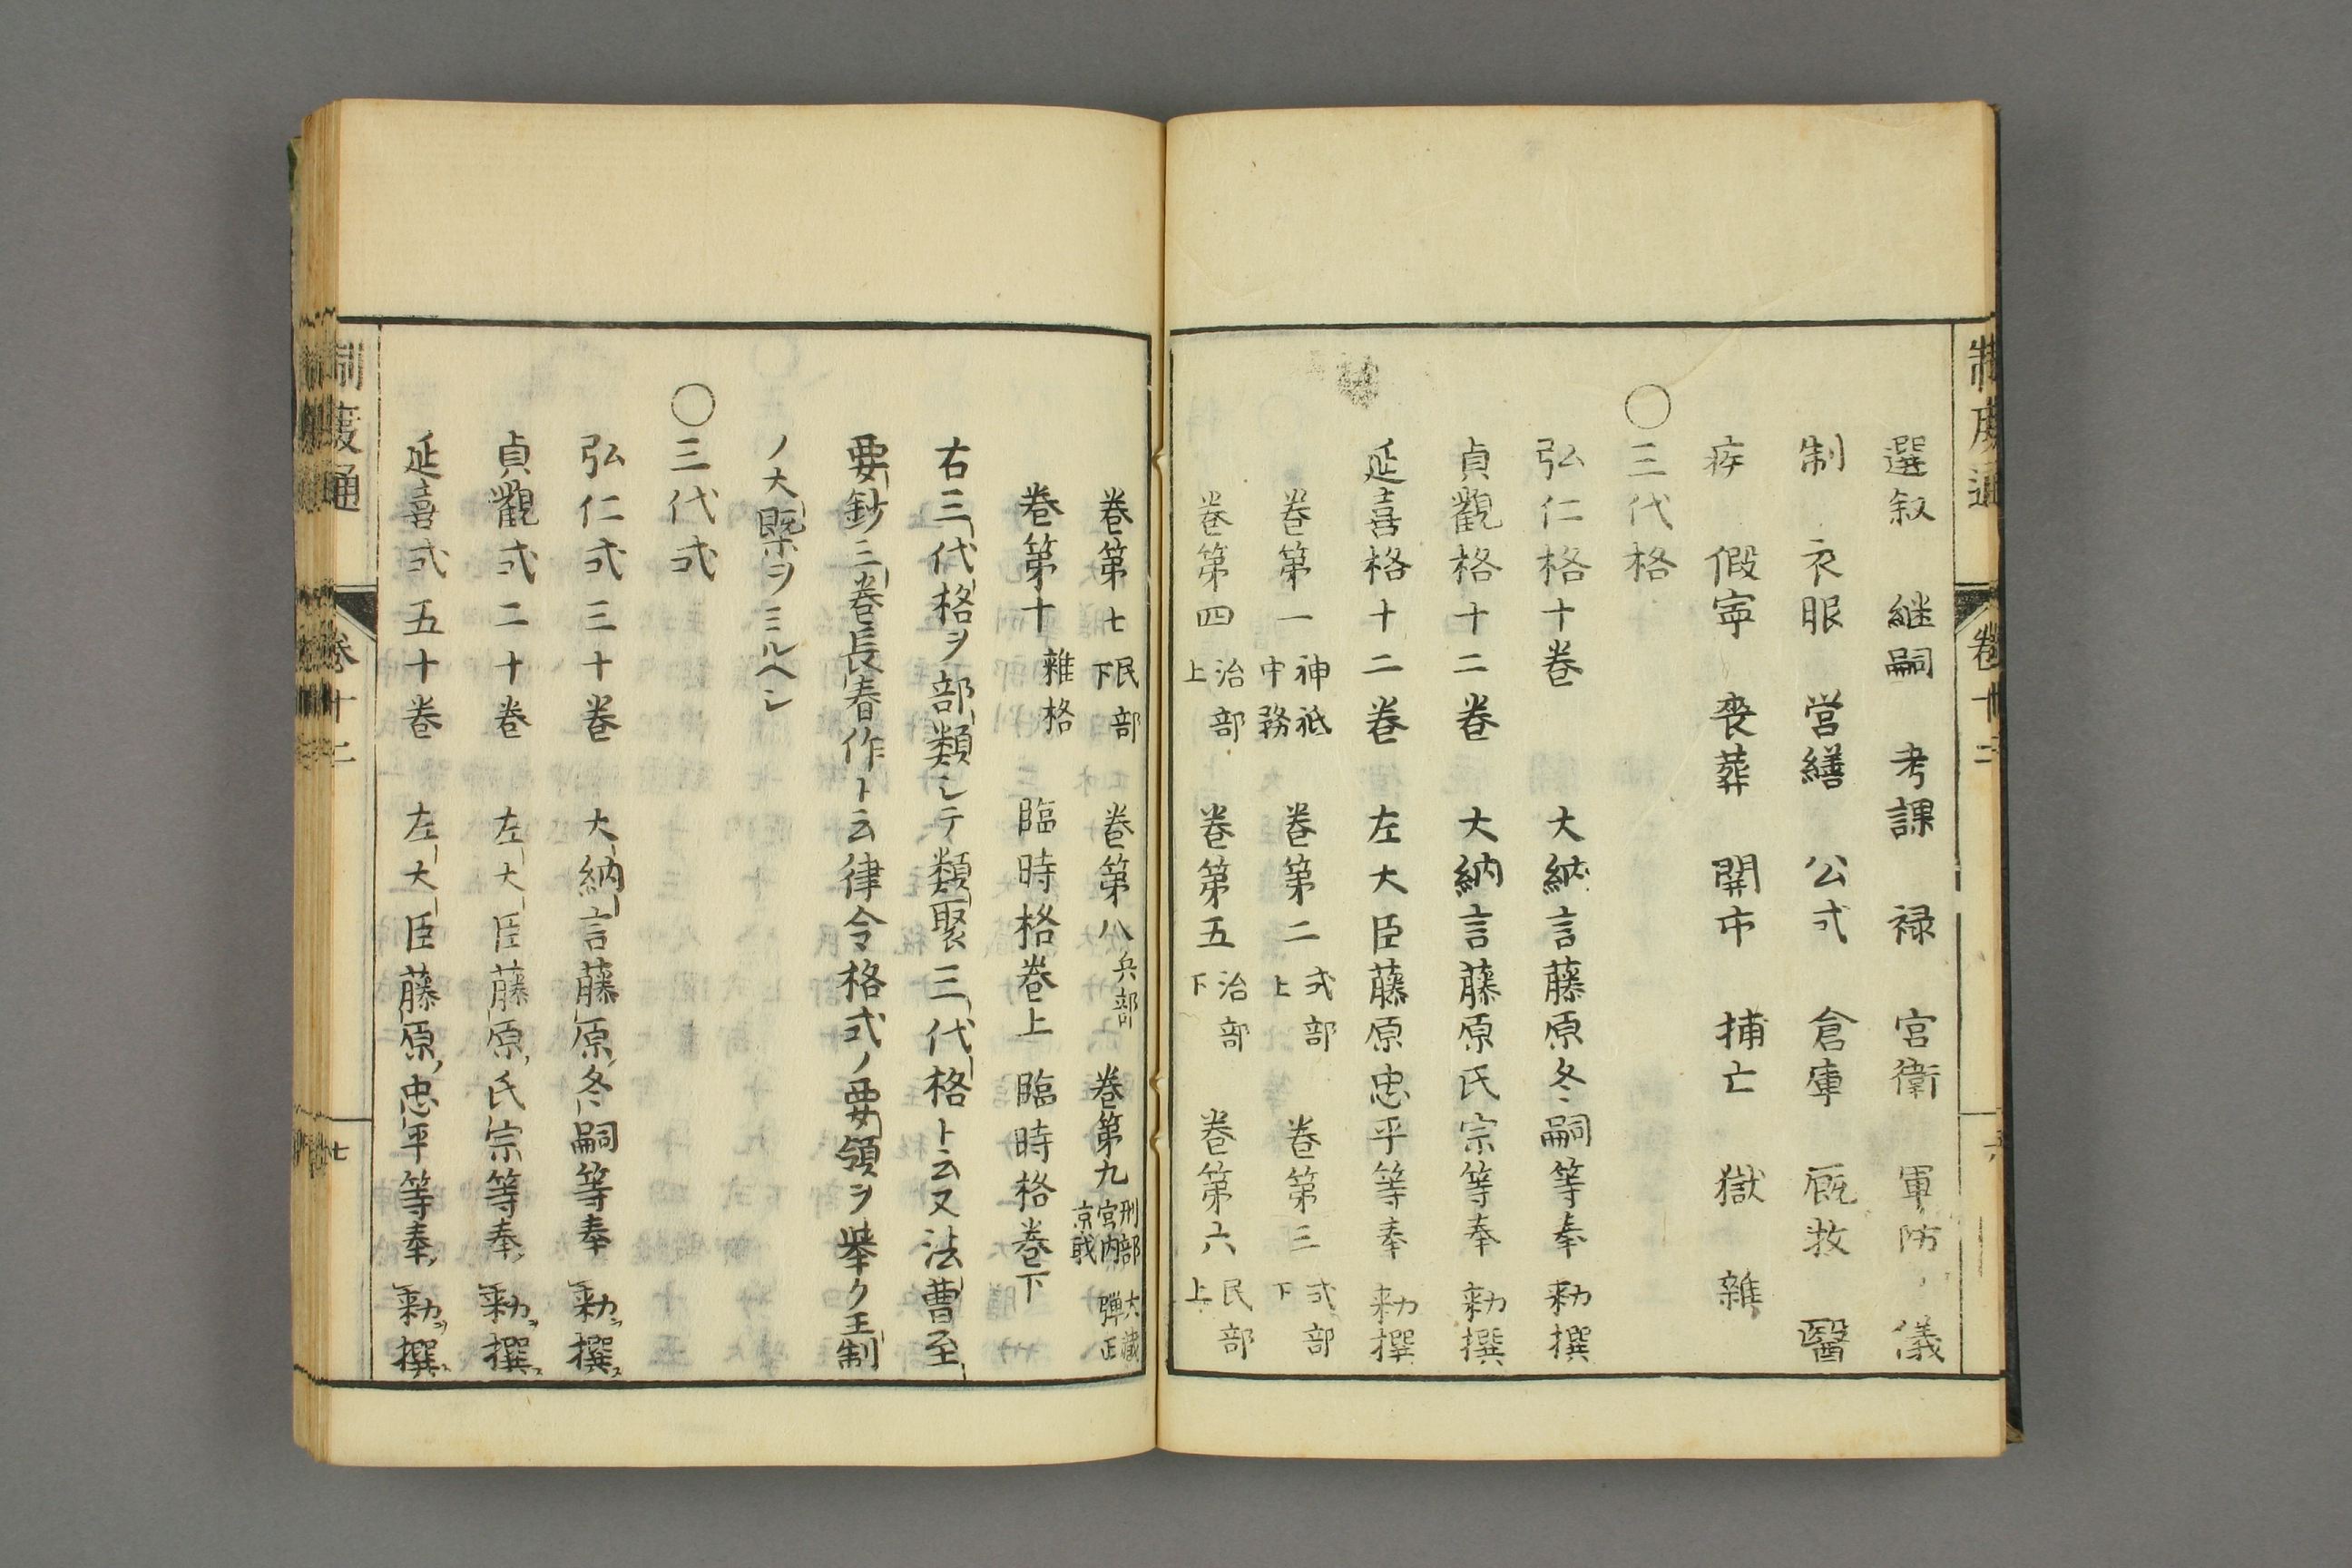 制度通 巻十二
選叙 継嗣 考課 禄 宮衛 軍防 儀
制 衣服 営繕 公式 倉庫 厩牧 醫
疾 假寧 喪葬 関市 捕亡 獄 雜
〇三代格
弘仁格十巻 大納言藤原冬嗣等奉 勅撰
貞觀格十二巻 大納言藤原氏宗等奉 勅撰
延喜格十二巻 左大臣藤原忠平等奉 勅撰
巻第一神祇中務 巻第二式部上 巻第三式部下
巻第四治部上 巻第五治部下 巻第六民部上
巻第七民部下 巻第八兵部 巻第九刑部大蔵宮内弾正京職
巻第十雜格 臨時格巻上 臨時格巻下
右三代格ヲ部類シテ類聚三代格ト云又法曹至
要鈔三巻長春作ト云律令格式ノ要領ヲ挙ク王制
ノ大概ヲミルヘシ
〇三代式
弘仁式三十巻 大納言藤原冬嗣等奉 勅撰
貞觀式二十巻 左大臣藤原氏宗等奉 勅撰
延喜式五十巻 左大臣藤原忠平等奉 勅撰
制度通 巻十二 七